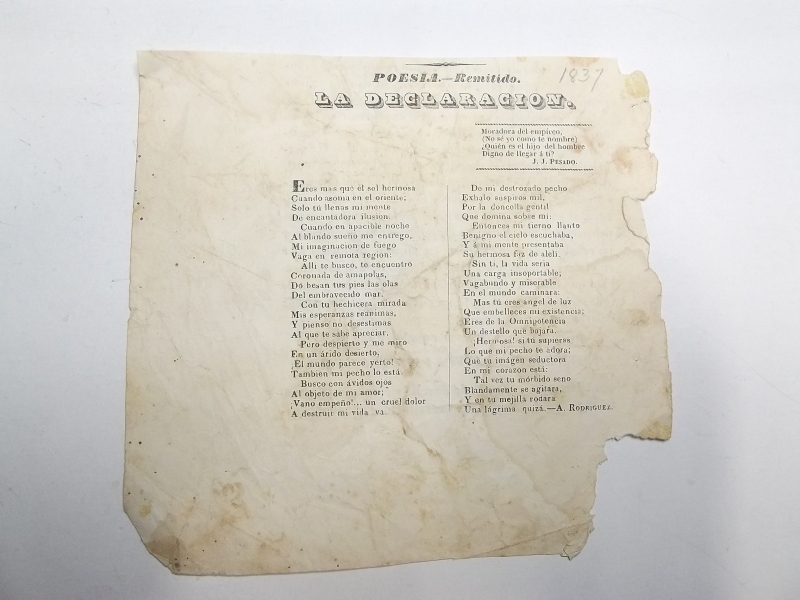 POESIA.—Remitido.
1837
LA DECLARACION.
Moradora del empíreo,
(No sé yo como te nombre)
¿Quién es el hijo del hombre
Digno de llegar á tí?
J. J. PESADO.
Eres mas que el sol hermosa
Cuando asoma en el oriente;
Solo tú llenas mi mente
De encantadora ilusion.
Cuando en apacible noche
Al blando sueño me entrego,
Mi imaginacion de fuego
Vaga en remota region:
Allí te busco, te encuentro
Coronada de amapolas,
Dó besan tus pies las olas
Del embravecido mar.
Con tu hechicera mirada
Mis esperanzas reanimas,
Y pienso no desestimas
Al que te sabe apreciar.
Pero despierto y me miro
En un árido desierto,
¡El mundo parece yerto!
Tambien mi pecho lo está
Busco con ávidos ojos
Al objeto de mi amor;
¡Vano empeño!... un cruel dolor
A destruir mi vida va.
De mi destrozado pecho
Exhalo suspiros mil,
Por la doncella gentil
Que domina sobre mi:
Entonces mi tierno llanto
Benigno el cielo escuchaba,
Y á mi mente presentaba
Su hermosa faz de alelí.
Sin tí, la vida seria
Una carga insoportable;
Vagabundo y miserable
En el mundo caminara:
Mas tú eres ángel de luz
Que embelleces mi existencia;
Eres de la Omnipotencia
Un destello que bajara.
¡Hermosa! si tú supieras
Lo que mi pecho te adora;
Que tu imágen seductora
En mi corazon está:
Tal vez tu mórbido seno
Blandamente se agitara,
Y en tu mejilla rodara
Una lágrima quizá.—A. RODRIGUEZ.